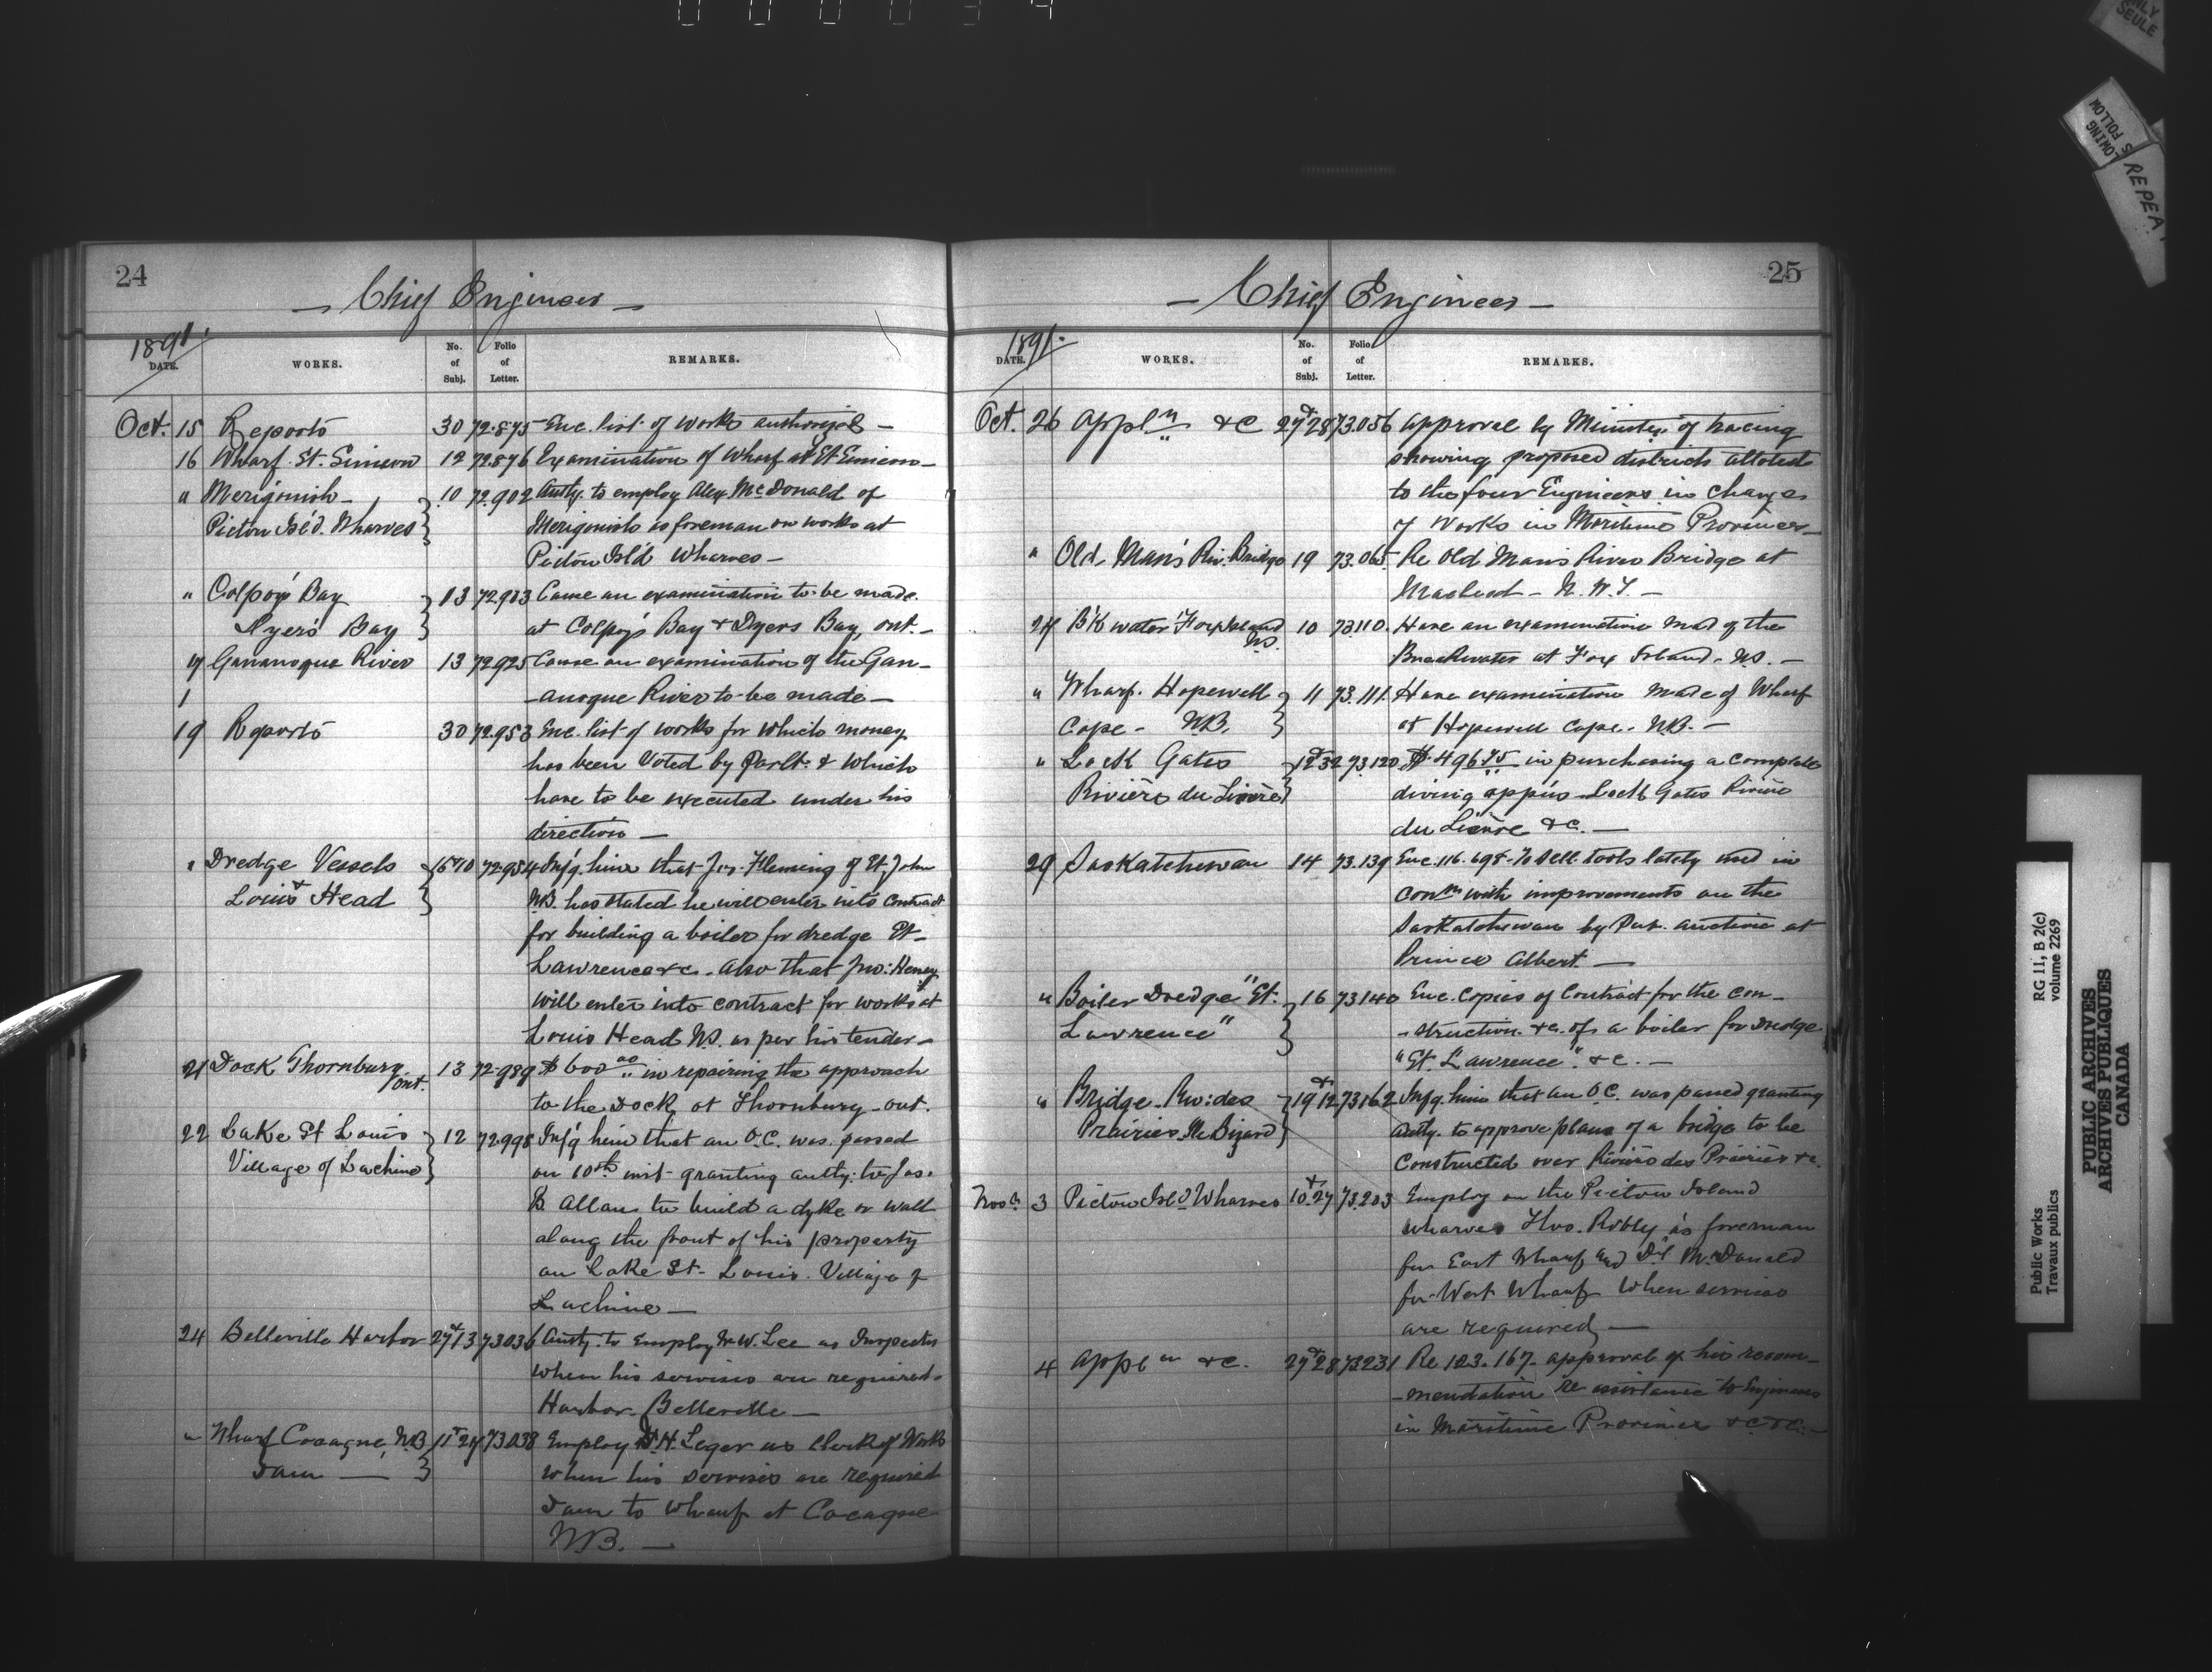 24
Chief Engineer
1891.
DATE. WORKS. No. of Subj. Folio of Letter. REMARKS.
Oct. 15 Reports 30 72.875 Enc. list of works authorized —
16 Wharf. St. Simeon 12 72876 Examination of Wharf at St Simeon —
" Merigonish — 10 72.902 Authy. to employ Alex McDonald of
Pictou Isl'd. Wharves Merigonish as foreman on works at
Pictou Isl'd Wharves —
" Colpoy's Bay 13 72913 Cause an examination to be made
Dyer's Bay at Colpoy's Bay & Dyers Bay, Ont. —
17 Gananoque River 13 72925 Cause an examination of the Gan-
-anoque River to be made —
19 Reports 30 72.953 Enc. list of works for which money
has been Voted by Parlt. & which
have to be executed under his
direction —
" Dredge Vessels 16 & 10 72.954 Inf'g. him that Jas. Fleming of St. John
Louis Head N.B. has stated he will enter into contract
for building a boiler for dredge St.
Lawrence &c. Also that Jno. Heney
will enter into contract for works at
Louis Head N.S. as per his tender —
21 Dock Thornbury Ont. 13 72.989 $600 00 in repairing the approach
to the Dock at Thornbury - Ont.
22 Lake St Louis 12 72998 Inf'g him that an O.C. was passed
Village of Lachine on 10th inst. granting authy. to Jas.
B. Allan to build a dyke or wall
along the front of his property
on Lake St. Louis. Village of
Lachine —
24 Belleville Harbor 27 & 13 73036 Authy. to Employ W. Lee as Inspector
when his services are required.
Harbor. Belleville —
" Wharf Cocagne, N.B 11 & 27 73038 Employ H Leger as Clerk of Works
Dam — when his services are required
Dam to Wharf at Cocagne
N.B. —
25
Chief Engineer
1891.
DATE. WORKS. No. of Subj. Folio of Letter. REMARKS.
Oct. 26 Appl'n &c 27 & 28 73.056 Approval by Minister of tracing
showing proposed districts alloted
to the four Engineers in Charge
of Works in Maritime Provinces —
" Old Man's Riv. Bridge 19 73.065 Re Old Mans River Bridge at
Macleod - N.W.T. —
27 B'kwater Fox Island N.S. 10 73110. Have an examination mad of the
Breakwater at Fox Island. N.S. —
" Wharf. Hopewell 11 73.111. Have examination made of Wharf
Cape - N.B. at Hopewell Cape. N.B. —
" Lock Gates 12 & 32 73120 $496 75 in purchasing a complete
Rivière du Lièvre diving app's. Lock Gates Rivière
du Lièvre &c. —
29 Saskatchewan 14 73.139 Enc. 116.698. To sell tools lately used in
con'n with improvements on the
Saskatchewan by Pub. auction at
Prince Albert —
" Boiler Dredge "St. 16 73140 Enc. Copies of Contract for the con-
Lawrence" -struction &c. of a boiler for Dredge
"St. Lawrence" &c. —
" Bridge. Riv: des 19 & 12 73162 Inf'g. him that an O.C. was passed granting
Prairies Ile Bizard Authy. to approve plans of a bridge to be
Constructed over Rivière des Prairies &c.
Nov. 3 Pictou Isl'd Wharves 10 & 27 73.203 Employ on the Pictou Island
wharves Thos. Robly as foreman
for East Wharf and Dl McDonald
for West Wharf when services
are required —
4 Appl'n &c. 27 & 28 73231 Re 123.167. approval of his recom-
-mendation re assistance to Engineers
in Maritime Provinces &c &c. —
ONLY
SEULE
LOWING
S FOLLOW
REPEA
RG 11, B 2(c)
volume 2269
Public Works
Travaux publics
PUBLIC ARCHIVES
ARCHIVES PUBLIQUES
CANADA